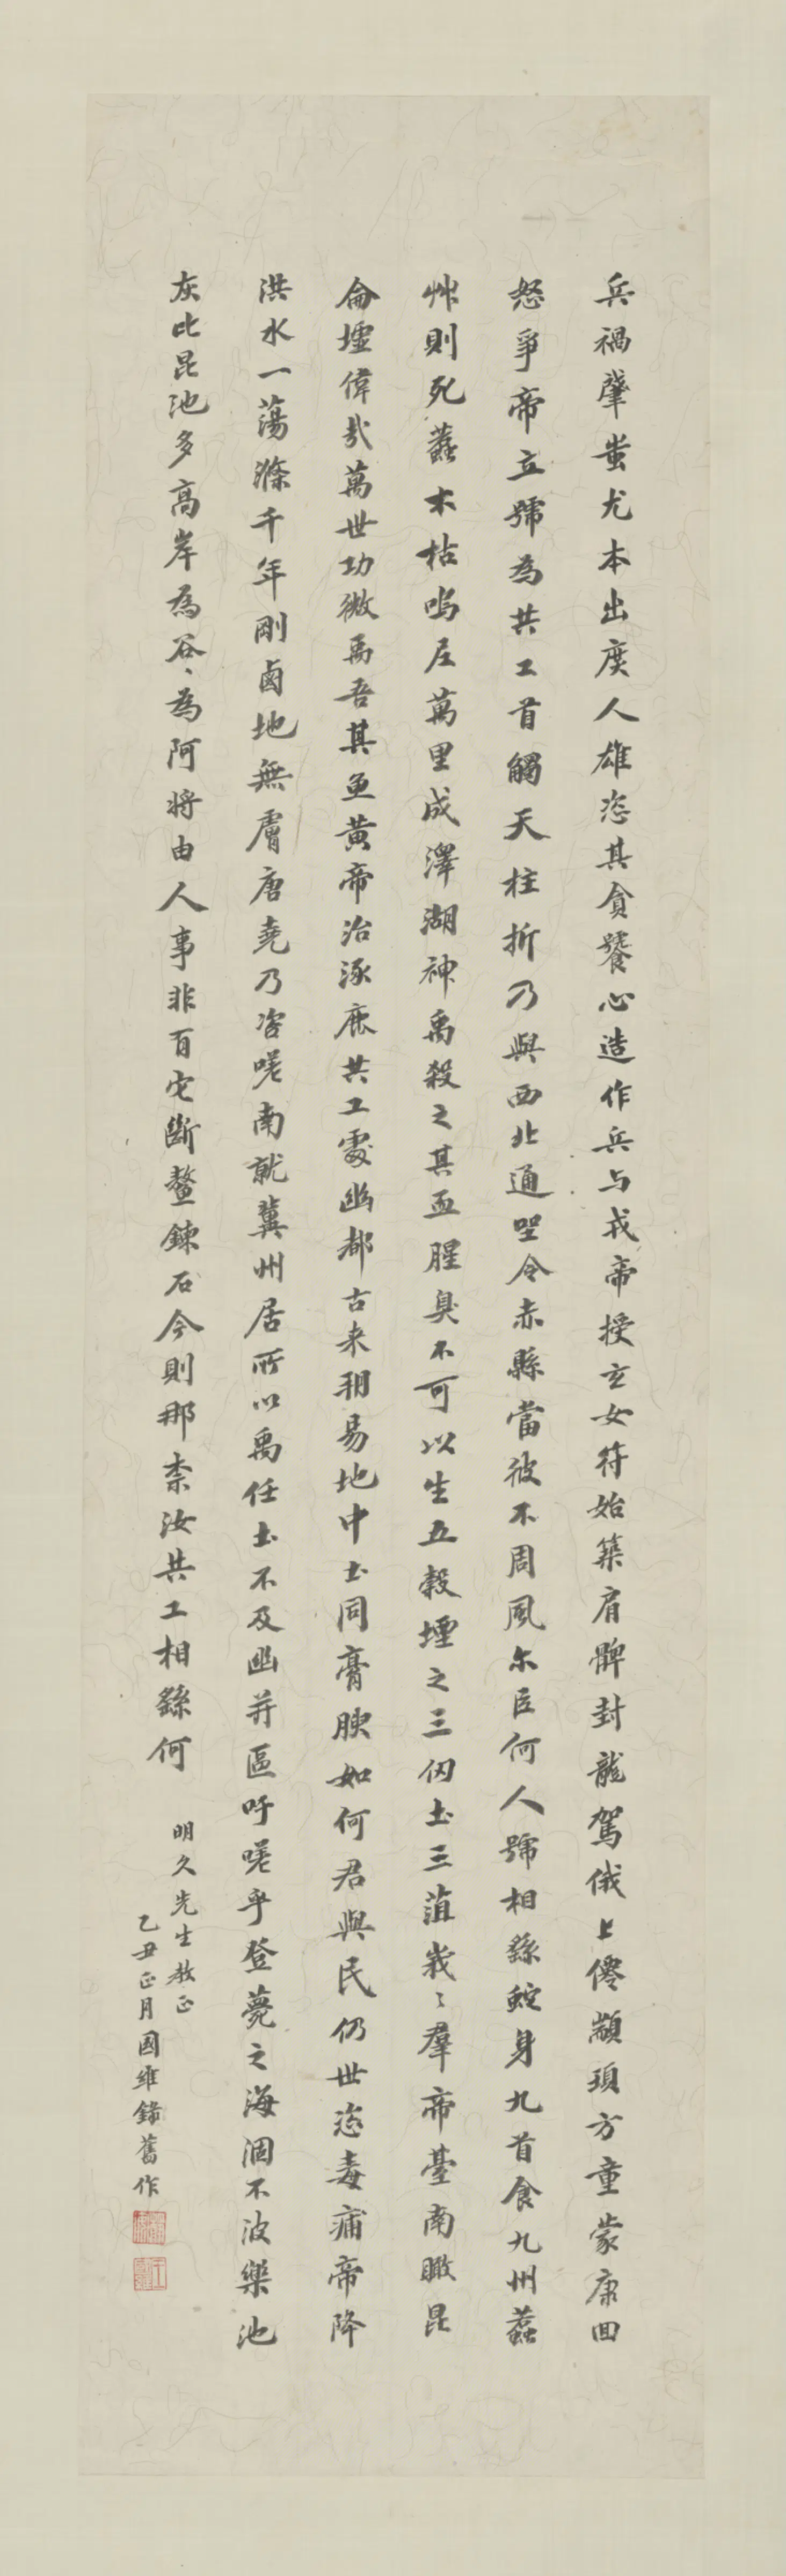 兵禍肇蚩尤本出庶人雄恣其貪饕心造作兵与戎帝授玄女符始築肩髀封龍駕俄上僊顓頊方童蒙康回
怒爭帝立號為共工首觸天柱折乃與西北通坐令赤縣當彼不周風尒臣何人號相繇蛇身九首食九州蠚
艸則死蠚木枯嗚㞐萬里成澤湖神禹殺之其血腥臭不可以生五穀堙之三仞土三菹峩〻羣帝臺南瞰昆
侖墟偉哉萬世功微禹吾其魚黃帝治涿鹿共工處幽都古来朔易地中土同膏腴如何君與民仍世恣毒痡帝降
洪水一蕩滌千年剛鹵地無膚唐堯乃咨嗟南就冀州居所以禹任土不及幽并區吁嗟乎登薨之海涸不波樂池
灰比昆池多高岸為谷〻為阿将由人事非有它斷鼇鍊石今則那柰汝共工相繇何
明久先生教正
乙丑正月國維錄舊作